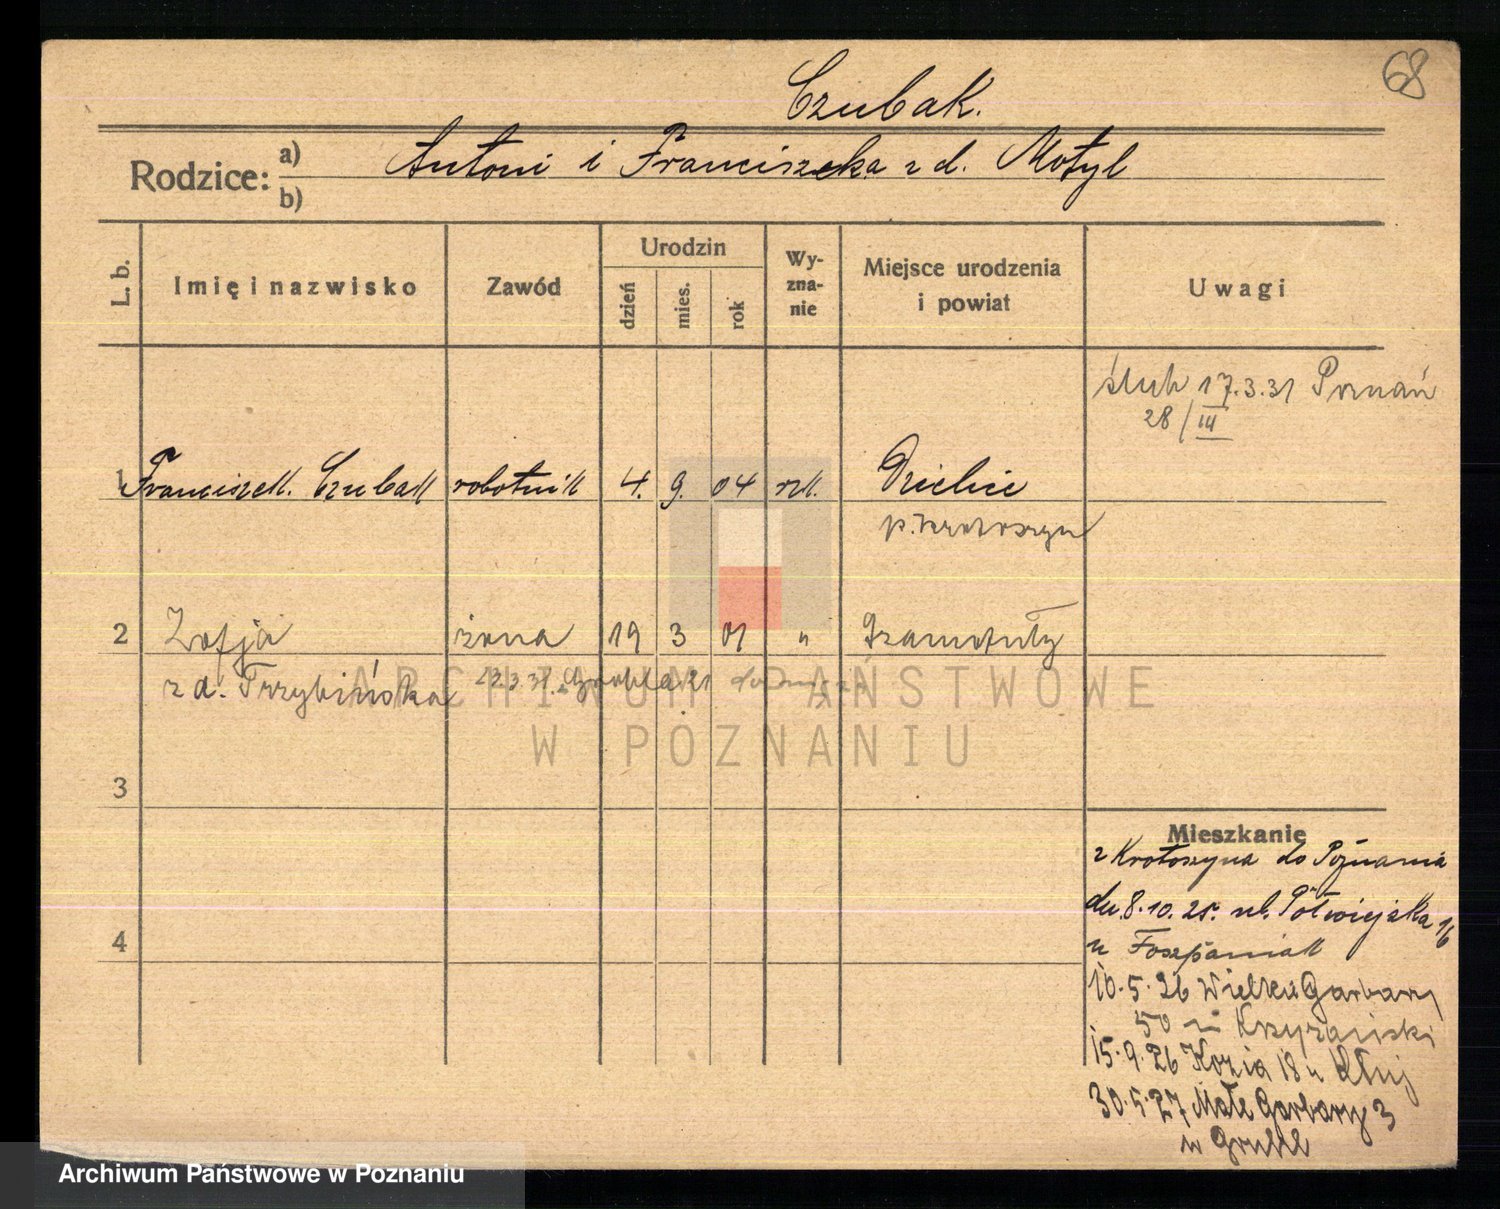 68
Czubak.
Rodzice: a) b)
Antoni i Franciszka z d. Motyl
L. b.
Imię i nazwisko
Zawód
Urodzin
dzień
mies.
rok
Wy-
zna-
nie
Miejsce urodzenia
i powiat
Uwagi
ślub 17.3.31 Poznań
28/III
1 Franciszek Czubak robotnik 4. 9. 04 rzk.
p. Krotoszyn
2 Zofja żona 19 3 01 "
z d. Trzybińska 23.3.31. Grobla 21
3
4
Mieszkanie
z Krotoszyna do Poznania
dn. 8.10.25. ul. Półwiejska 1/6
u
10.5.26 Wielkie Garbary
50 u Krzyżański
15.9.26 Kozia 18 u
30.5.27 Małe Garbary 3
u
ARCHIWUM PAŃSTWOWE
W POZNANIU
Archiwum Państwowe w Poznaniu